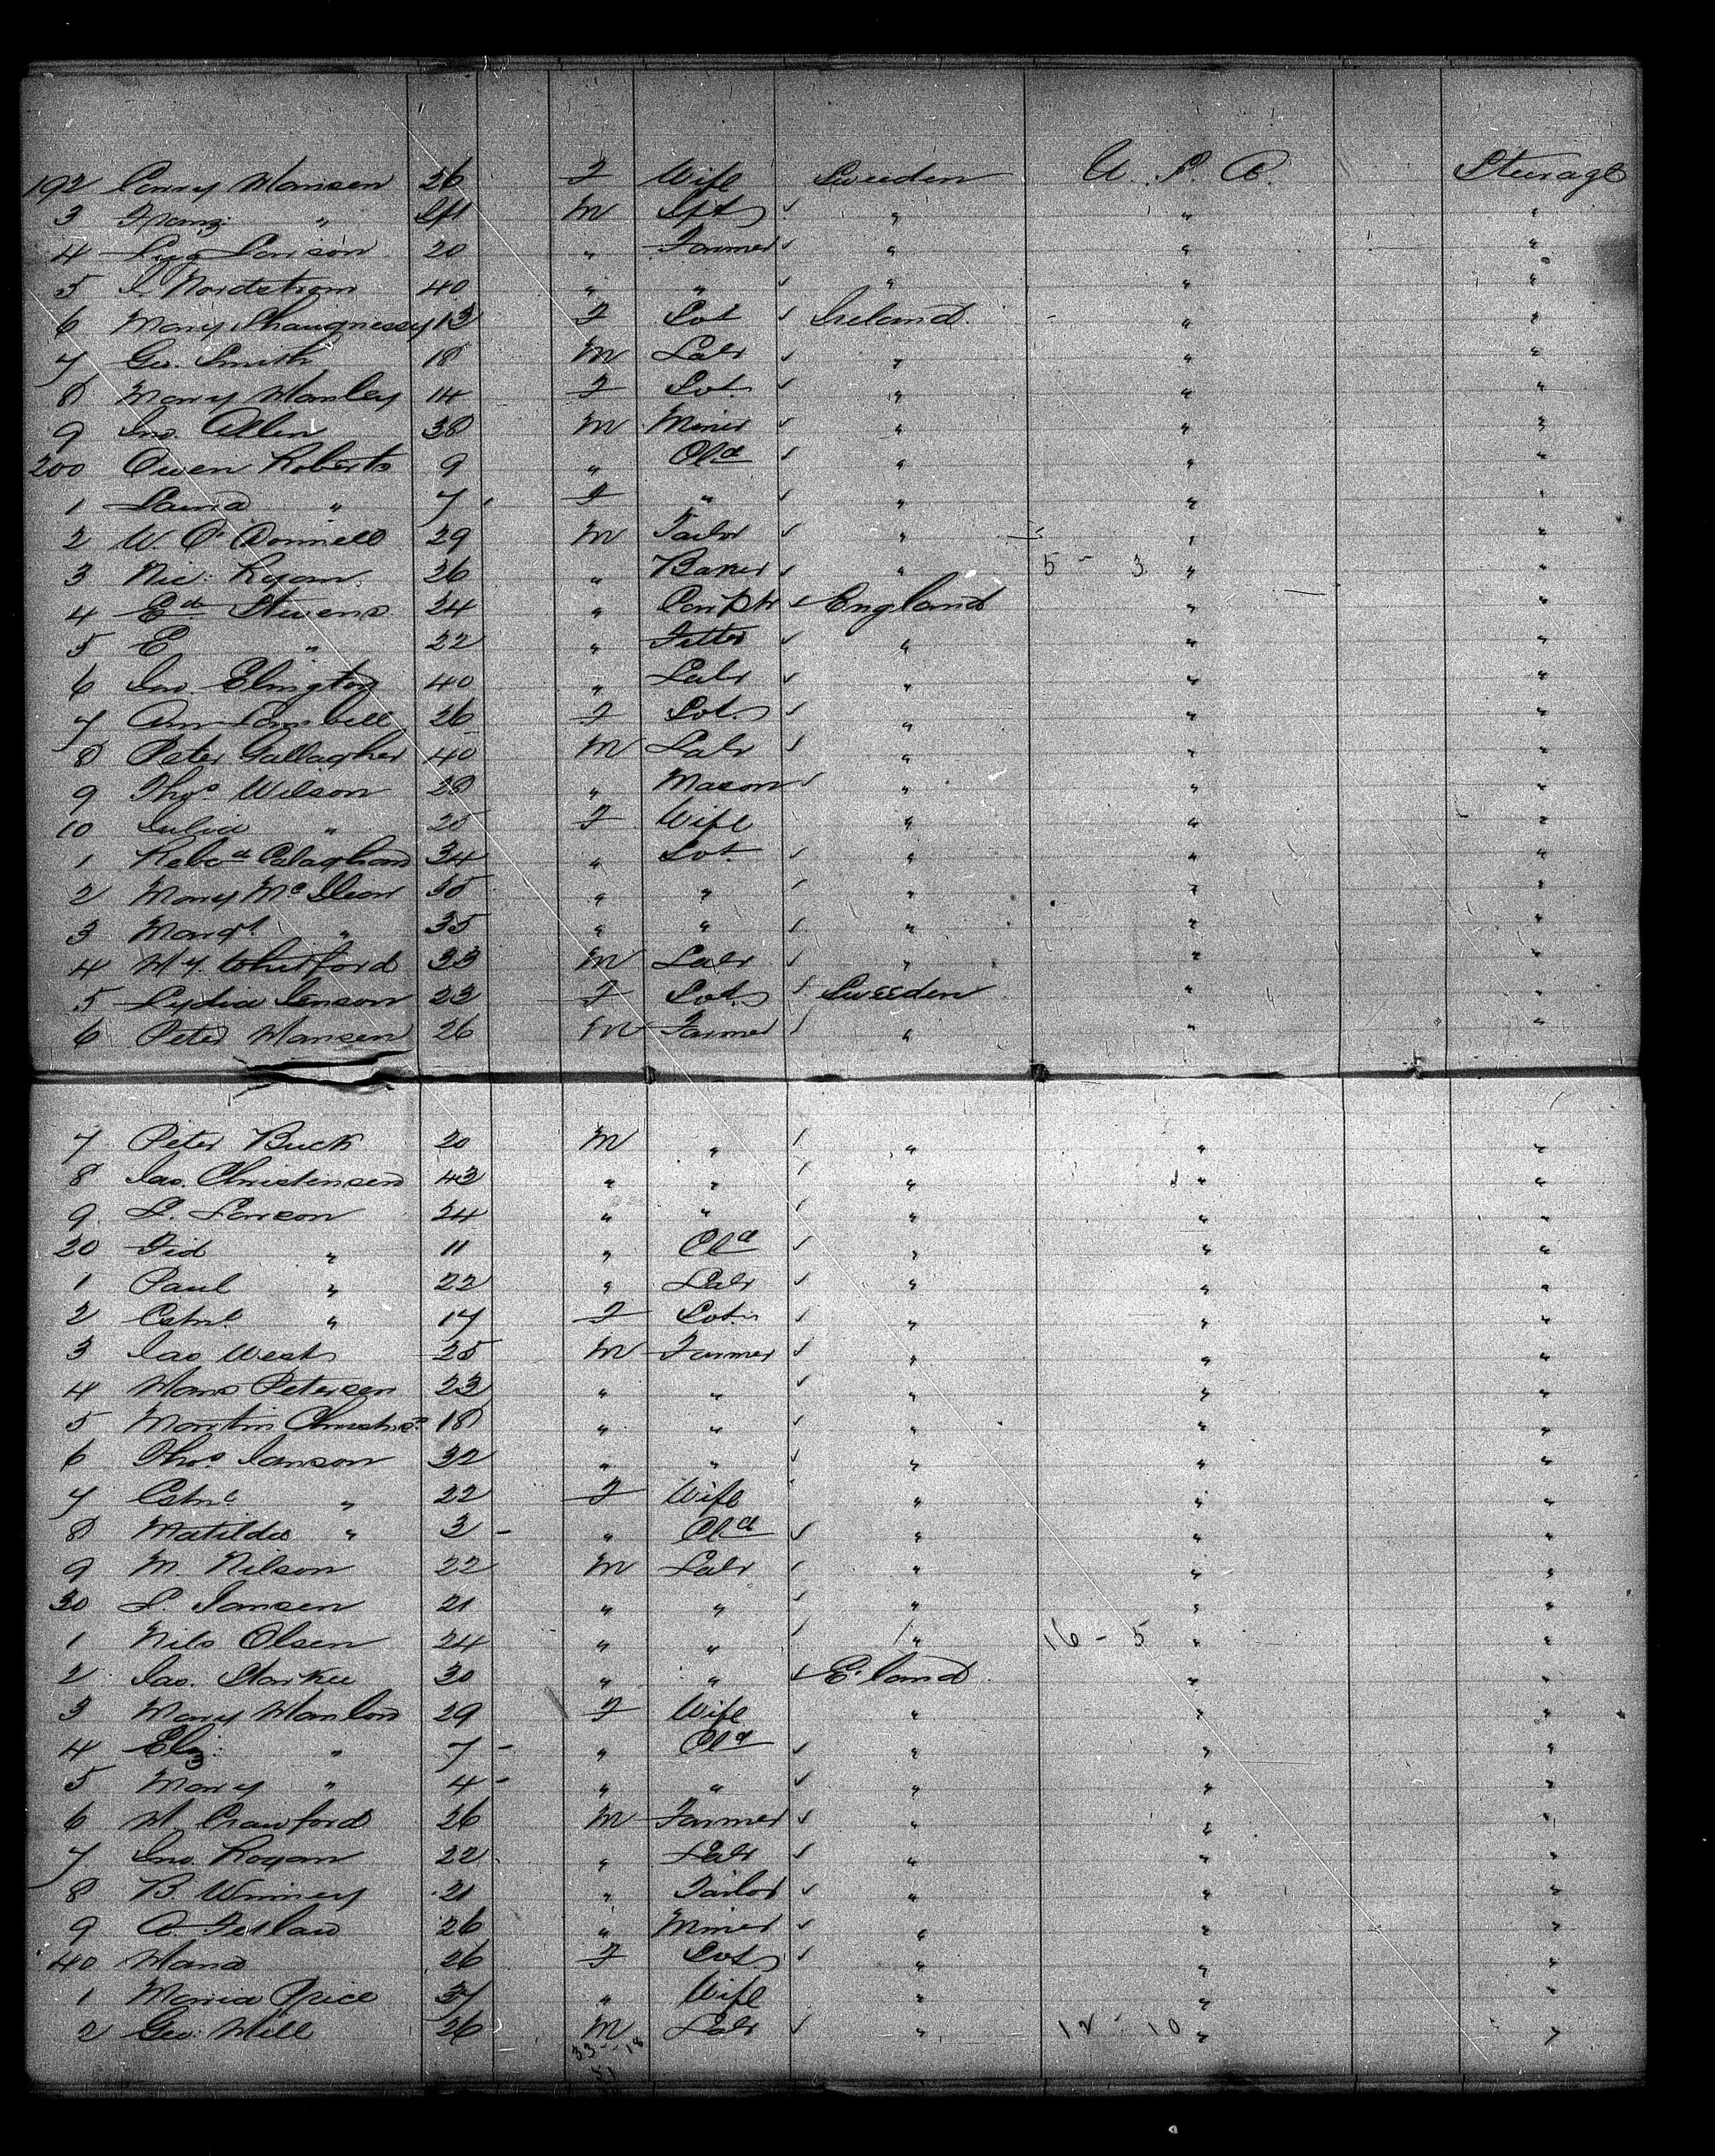 192 Hansen 26 F Wife Sweeden U. S. A. Steerage
3 Franz " M " " "
4 Larson 20 " Farmer " " "
5 Nordstrom 40 " " " " "
6 Mary Shaugnessy 13 F Ireland " "
7 Geo. Smith 18 M Labr " " "
8 Mary Manley 14 F " " "
9 Jno. Allen 38 M Miner " " "
200 Owen Roberts 9 " Chd " " "
1 Laura " 7 F " " " "
2 W. O'Donnell 29 M Tailor " " "
3 Nic: Ryan 26 " Baker " 5 - 3 " "
4 Ed Stevens 24 " England " "
5 E " 22 " Fitter " " "
6 Jno. Elrington 40 " Labr " " "
7 Ann Cambell 26 F " " "
8 Peter Gallagher 40 M Labr " " "
9 Thos Wilson 28 " Mason " " "
10 Julia " 20 F Wife " " "
1 Rebca Calaghan 34 " " " "
2 Mary " " " " "
3 Margt " 35 " " " " "
4 Whitford 33 M Labr " " "
5 Lydia Jenson 23 F Sweeden " "
6 Peter Hansen 26 M Farmer " " "
7 Peter Buck 20 M " " " "
8 Jas. Christensen 43 " " " " "
9 L. Larson 24 " " " " "
20 " 11 " Chd " " "
1 Paul " 22 " Labr " " "
2 " 17 F " " "
3 Jas West 25 M Farmer " " "
4 Hans Petersen 23 " " " " "
5 Martin 18 " " " " "
6 Thos Janson 32 " " " " "
7 " 22 F Wife " " "
8 Matilda " 3 - " Chd " " "
9 M. Nilson 22 M Labr " " "
30 L. Jansen 21 " " " " "
1 Nils Olsen 24 " " " 16 - 5 " "
2 Jas. Starkee 30 " " E'land " "
3 Mary Hanlon 29 F Wife " " "
4 Eliz: " 7 - " Chd " " "
5 Mary " 4 - " " " " "
6 Crawford 26 M Farmer " " "
7 Jno. Rogan 22 " Labr " " "
8 B. Winney 21 " Tailor " " "
9 A. 26 " Miner " " "
40 26 F " " "
1 Maria Price 37 " Wife " " "
2 Geo: Hill 26 M Labr " 12 - 10 " "
33 - 18
51